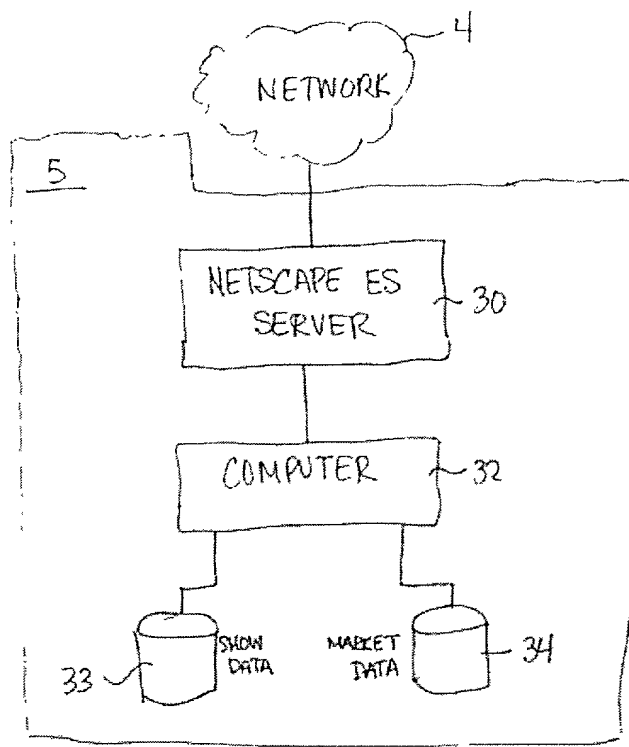 4
NETWORK
5
NETSCAPE ES
SERVER
30
COMPUTER
32
SHOW
DATA
33
MARKET
DATA
34